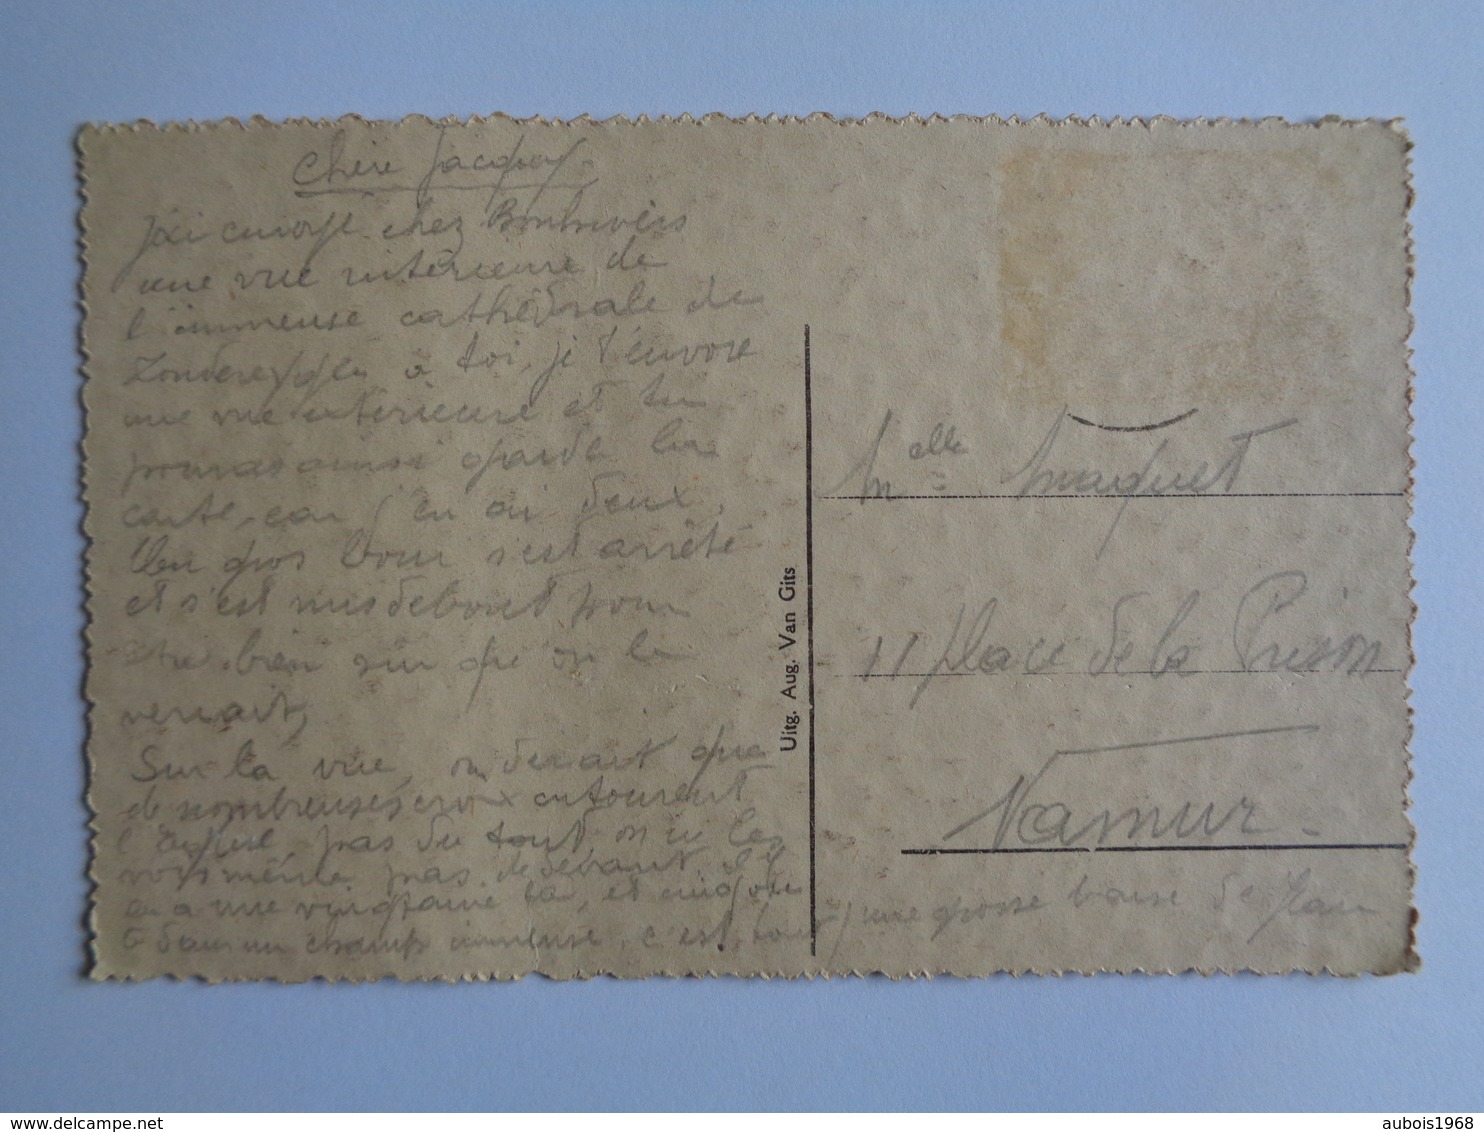 Chère Jacquy.
J'ai envoyé chez
une vue intérieure de
l'immense cathédrale de
à toi, je t'envoie
une vue intérieure et tu
pourras aussi garder la
carte, car j'en ai deux.
Un gros bour s'est arrêté
et s'est mis debout pour
être bien sûr qu'on le
verrait,
Sur la vue, on dirait que
de nombreuses croix entourent
l'église, pas du tout, on ne les
vois même pas de devant, il y
en a une vingtaine là, et
dans un champs immense, c'est tout, une grosse baise de Jean
Uitg. Aug. Van Gits
Melle Maquet
11 place de la Prison
Namur.
aubois1968